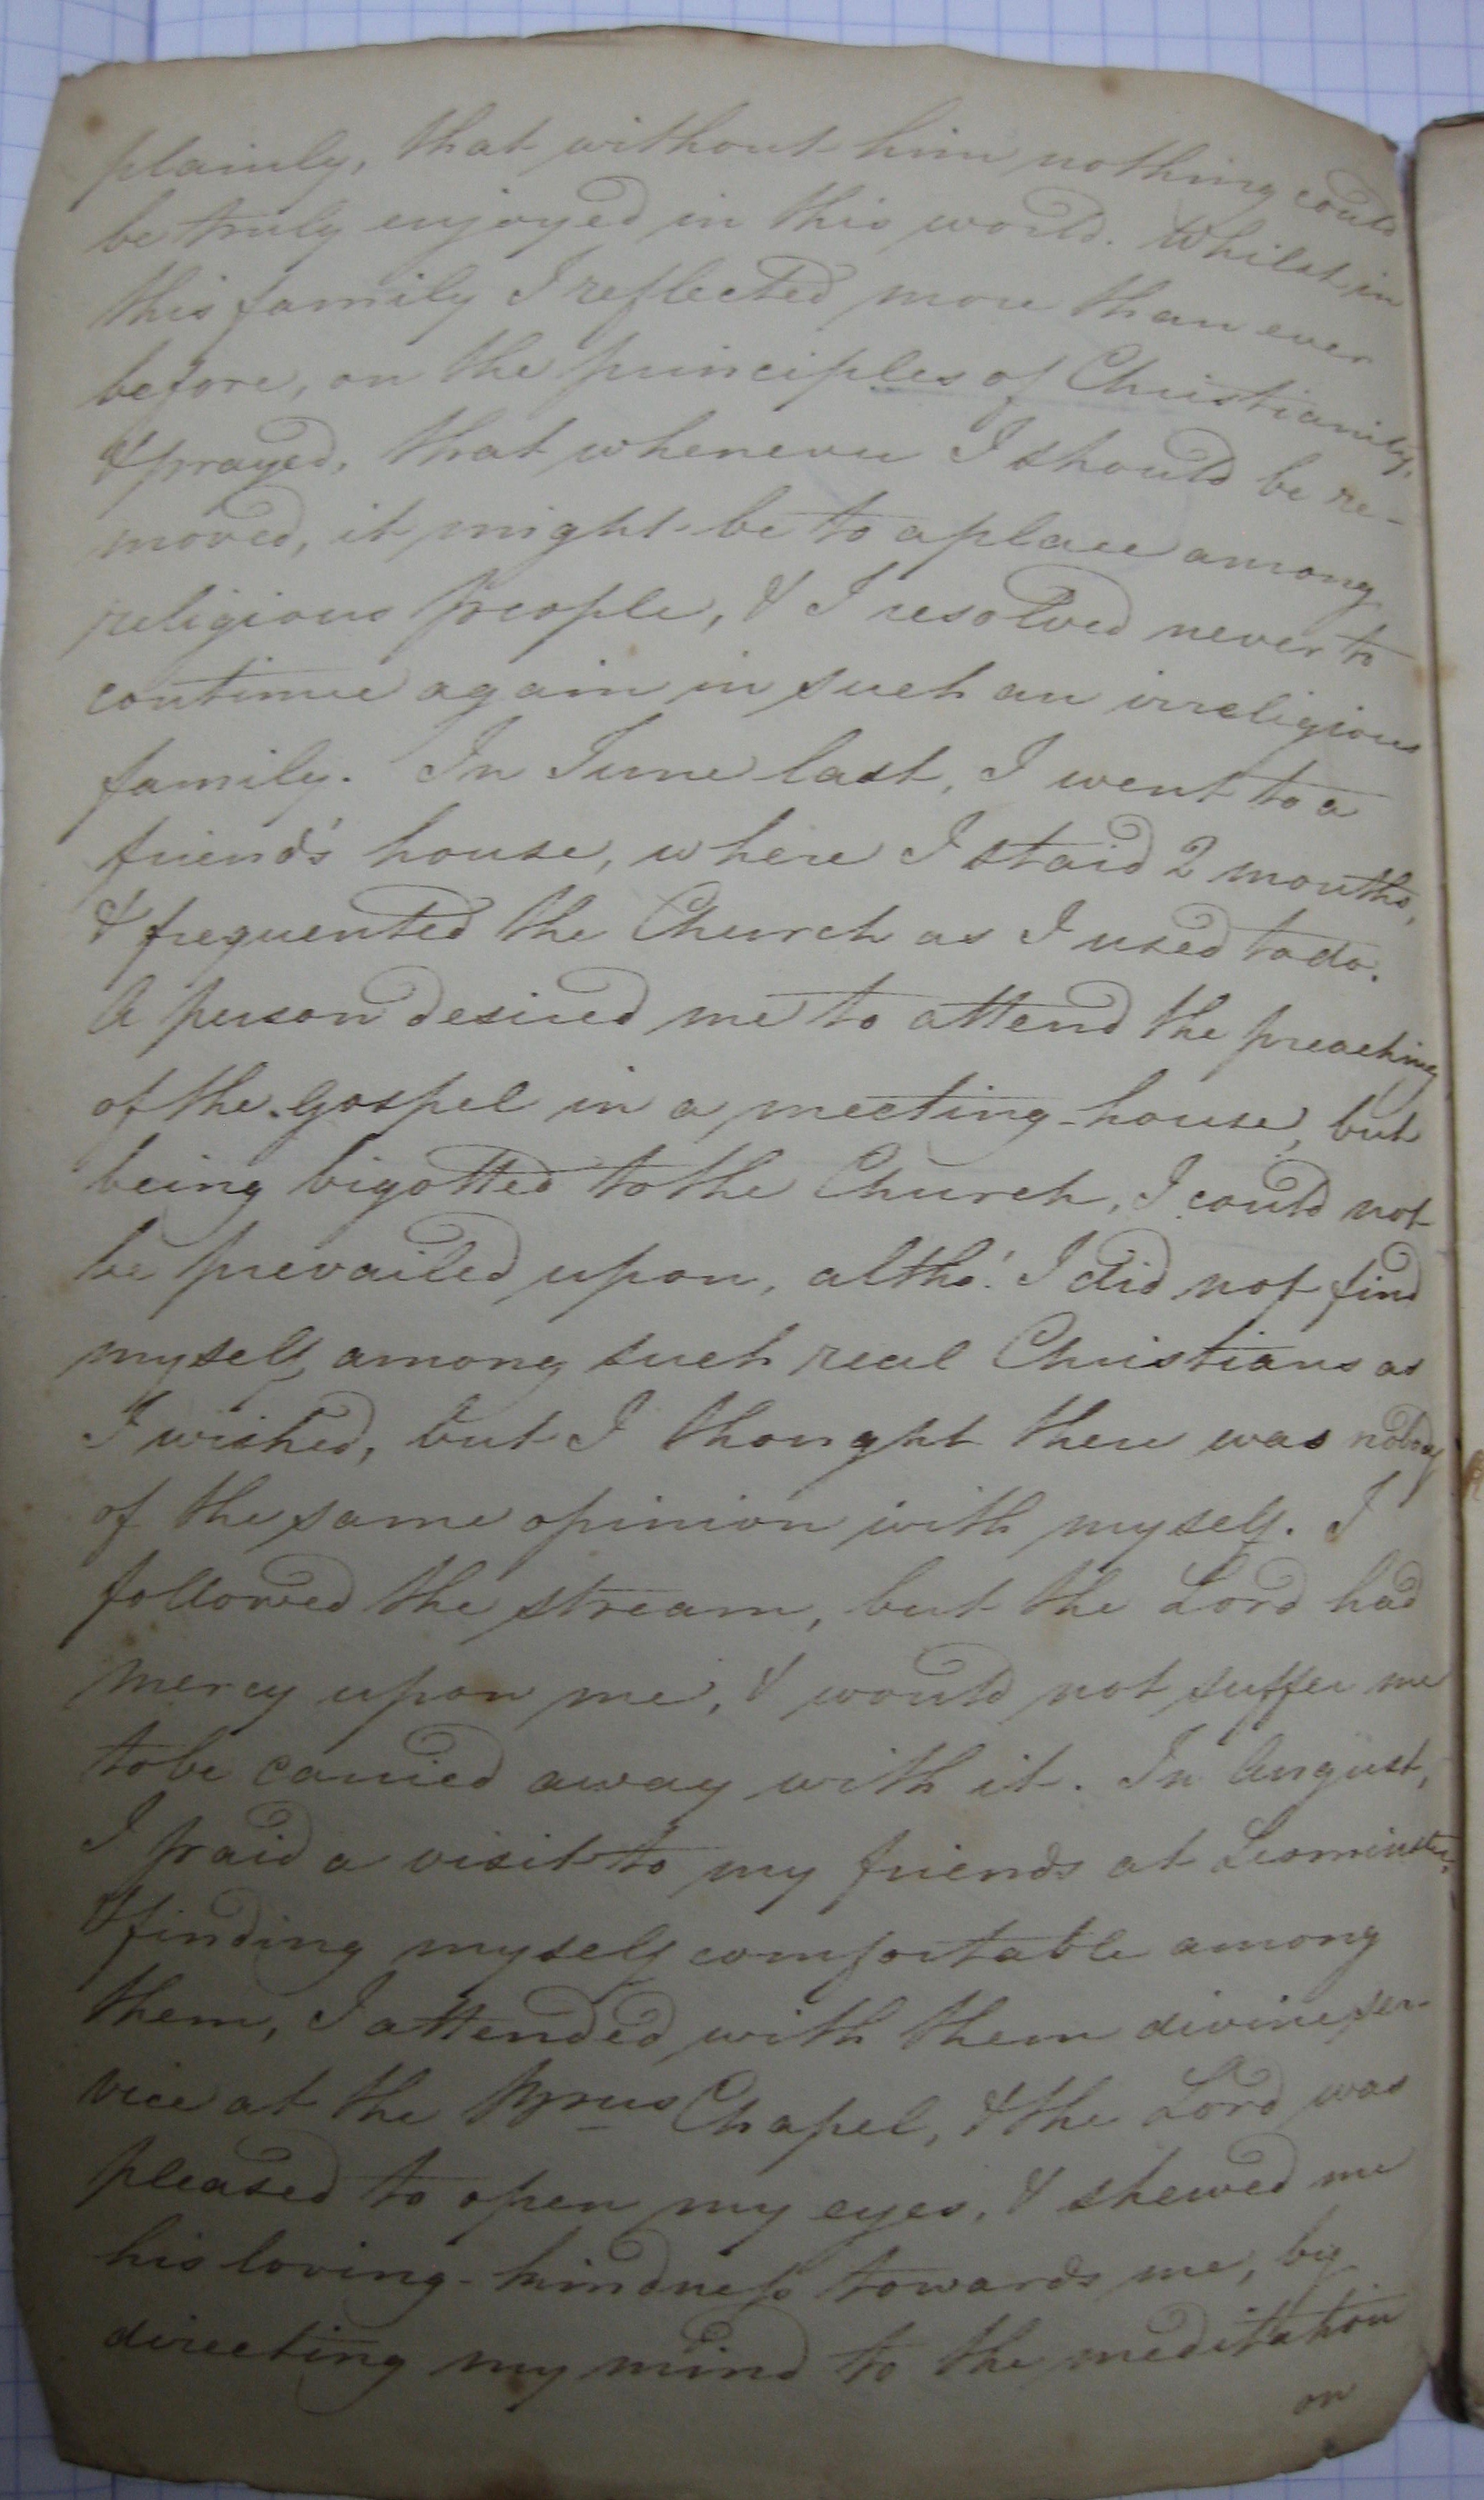 plainly, that without him nothing could
be truly enjoyed in this world. Whilst in
this family I reflected more than ever
before, on the principles of Christianity,
& prayed, that whenever I should be re-
moved, it might be to a place among
religious people, & I resolved never to
continue again in such an irreligious
family. In June last, I went to a
friend's house, where I staid 2 months,
& frequented the Church as I used to do.
A person desired me to attend the preaching
of the Gospel in a meeting-house, but
being bigotted to the Church, I could not
be prevailed upon, altho' I did not find
myself among such real Christians as
I wished, but I thought there was nobody
of the same opinion with myself. I
followed the stream, but the Lord had
mercy upon me, & would not suffer me
to be carried away with it. In August,
I paid a visit to my friends at Leominster,
& finding myself comfortable among
them, I attended with them divine ser-
vice at the Brns Chapel, & the Lord was
pleased to open my eyes, & shewed me
his loving-kindness towards me, by
directing my mind to the meditation
on